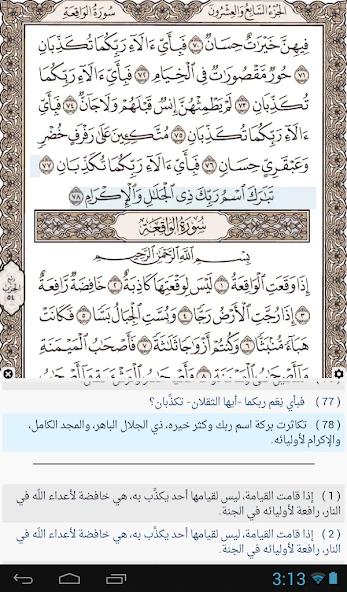 الجزء السابع والعشرون
سورة الواقعة
فِيهِنَّ خَيْرَٰتٌ حِسَانٌ ٧٠ فَبِأَيِّ ءَالَآءِ رَبِّكُمَا تُكَذِّبَانِ
٧١ حُورٌ مَّقْصُورَٰتٌ فِي ٱلْخِيَامِ ٧٢ فَبِأَيِّ ءَالَآءِ رَبِّكُمَا
تُكَذِّبَانِ ٧٣ لَمْ يَطْمِثْهُنَّ إِنسٌ قَبْلَهُمْ وَلَا جَآنٌّ ٧٤ فَبِأَيِّ
ءَالَآءِ رَبِّكُمَا تُكَذِّبَانِ ٧٥ مُتَّكِـِٔينَ عَلَىٰ رَفْرَفٍ خُضْرٍ
وَعَبْقَرِيٍّ حِسَانٍ ٧٦ فَبِأَيِّ ءَالَآءِ رَبِّكُمَا تُكَذِّبَانِ ٧٧
تَبَٰرَكَ ٱسْمُ رَبِّكَ ذِي ٱلْجَلَٰلِ وَٱلْإِكْرَامِ ٧٨
سُورَةُ الوَاقِعَة
بِسْمِ ٱللَّهِ ٱلرَّحْمَٰنِ ٱلرَّحِيمِ
إِذَا وَقَعَتِ ٱلْوَاقِعَةُ ١ لَيْسَ لِوَقْعَتِهَا كَاذِبَةٌ ٢ خَافِضَةٌ رَّافِعَةٌ
٣ إِذَا رُجَّتِ ٱلْأَرْضُ رَجًّا ٤ وَبُسَّتِ ٱلْجِبَالُ بَسًّا ٥ فَكَانَتْ
هَبَآءً مُّنۢبَثًّا ٦ وَكُنتُمْ أَزْوَٰجًا ثَلَٰثَةً ٧ فَأَصْحَٰبُ ٱلْمَيْمَنَةِ
مَآ أَصْحَٰبُ ٱلْمَيْمَنَةِ ٨
الحزب
٥٤
( 77 ) فبأي نِعَم ربكما -أيها الثقلان- تكذِّبان؟
( 78 ) تكاثرت بركة اسم ربك وكثر خيره، ذي الجلال الباهر، والمجد الكامل،
والإكرام لأوليائه.
( 1 ) إذا قامت القيامة، ليس لقيامها أحد يكذِّب به، هي خافضة لأعداء الله في
النار، رافعة لأوليائه في الجنة.
( 2 ) إذا قامت القيامة، ليس لقيامها أحد يكذِّب به، هي خافضة لأعداء الله في
النار، رافعة لأوليائه في الجنة.
3:13